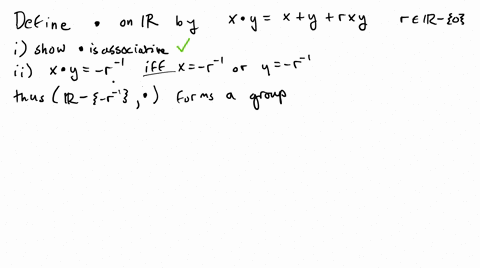 Define • on ℝ by x•y = x+y+rxy r∈ℝ-{0}
i) show • is associative ✓
ii) x•y=-r⁻¹ iff x=-r⁻¹ or y=-r⁻¹
thus (ℝ-{-r⁻¹}, •) forms a group